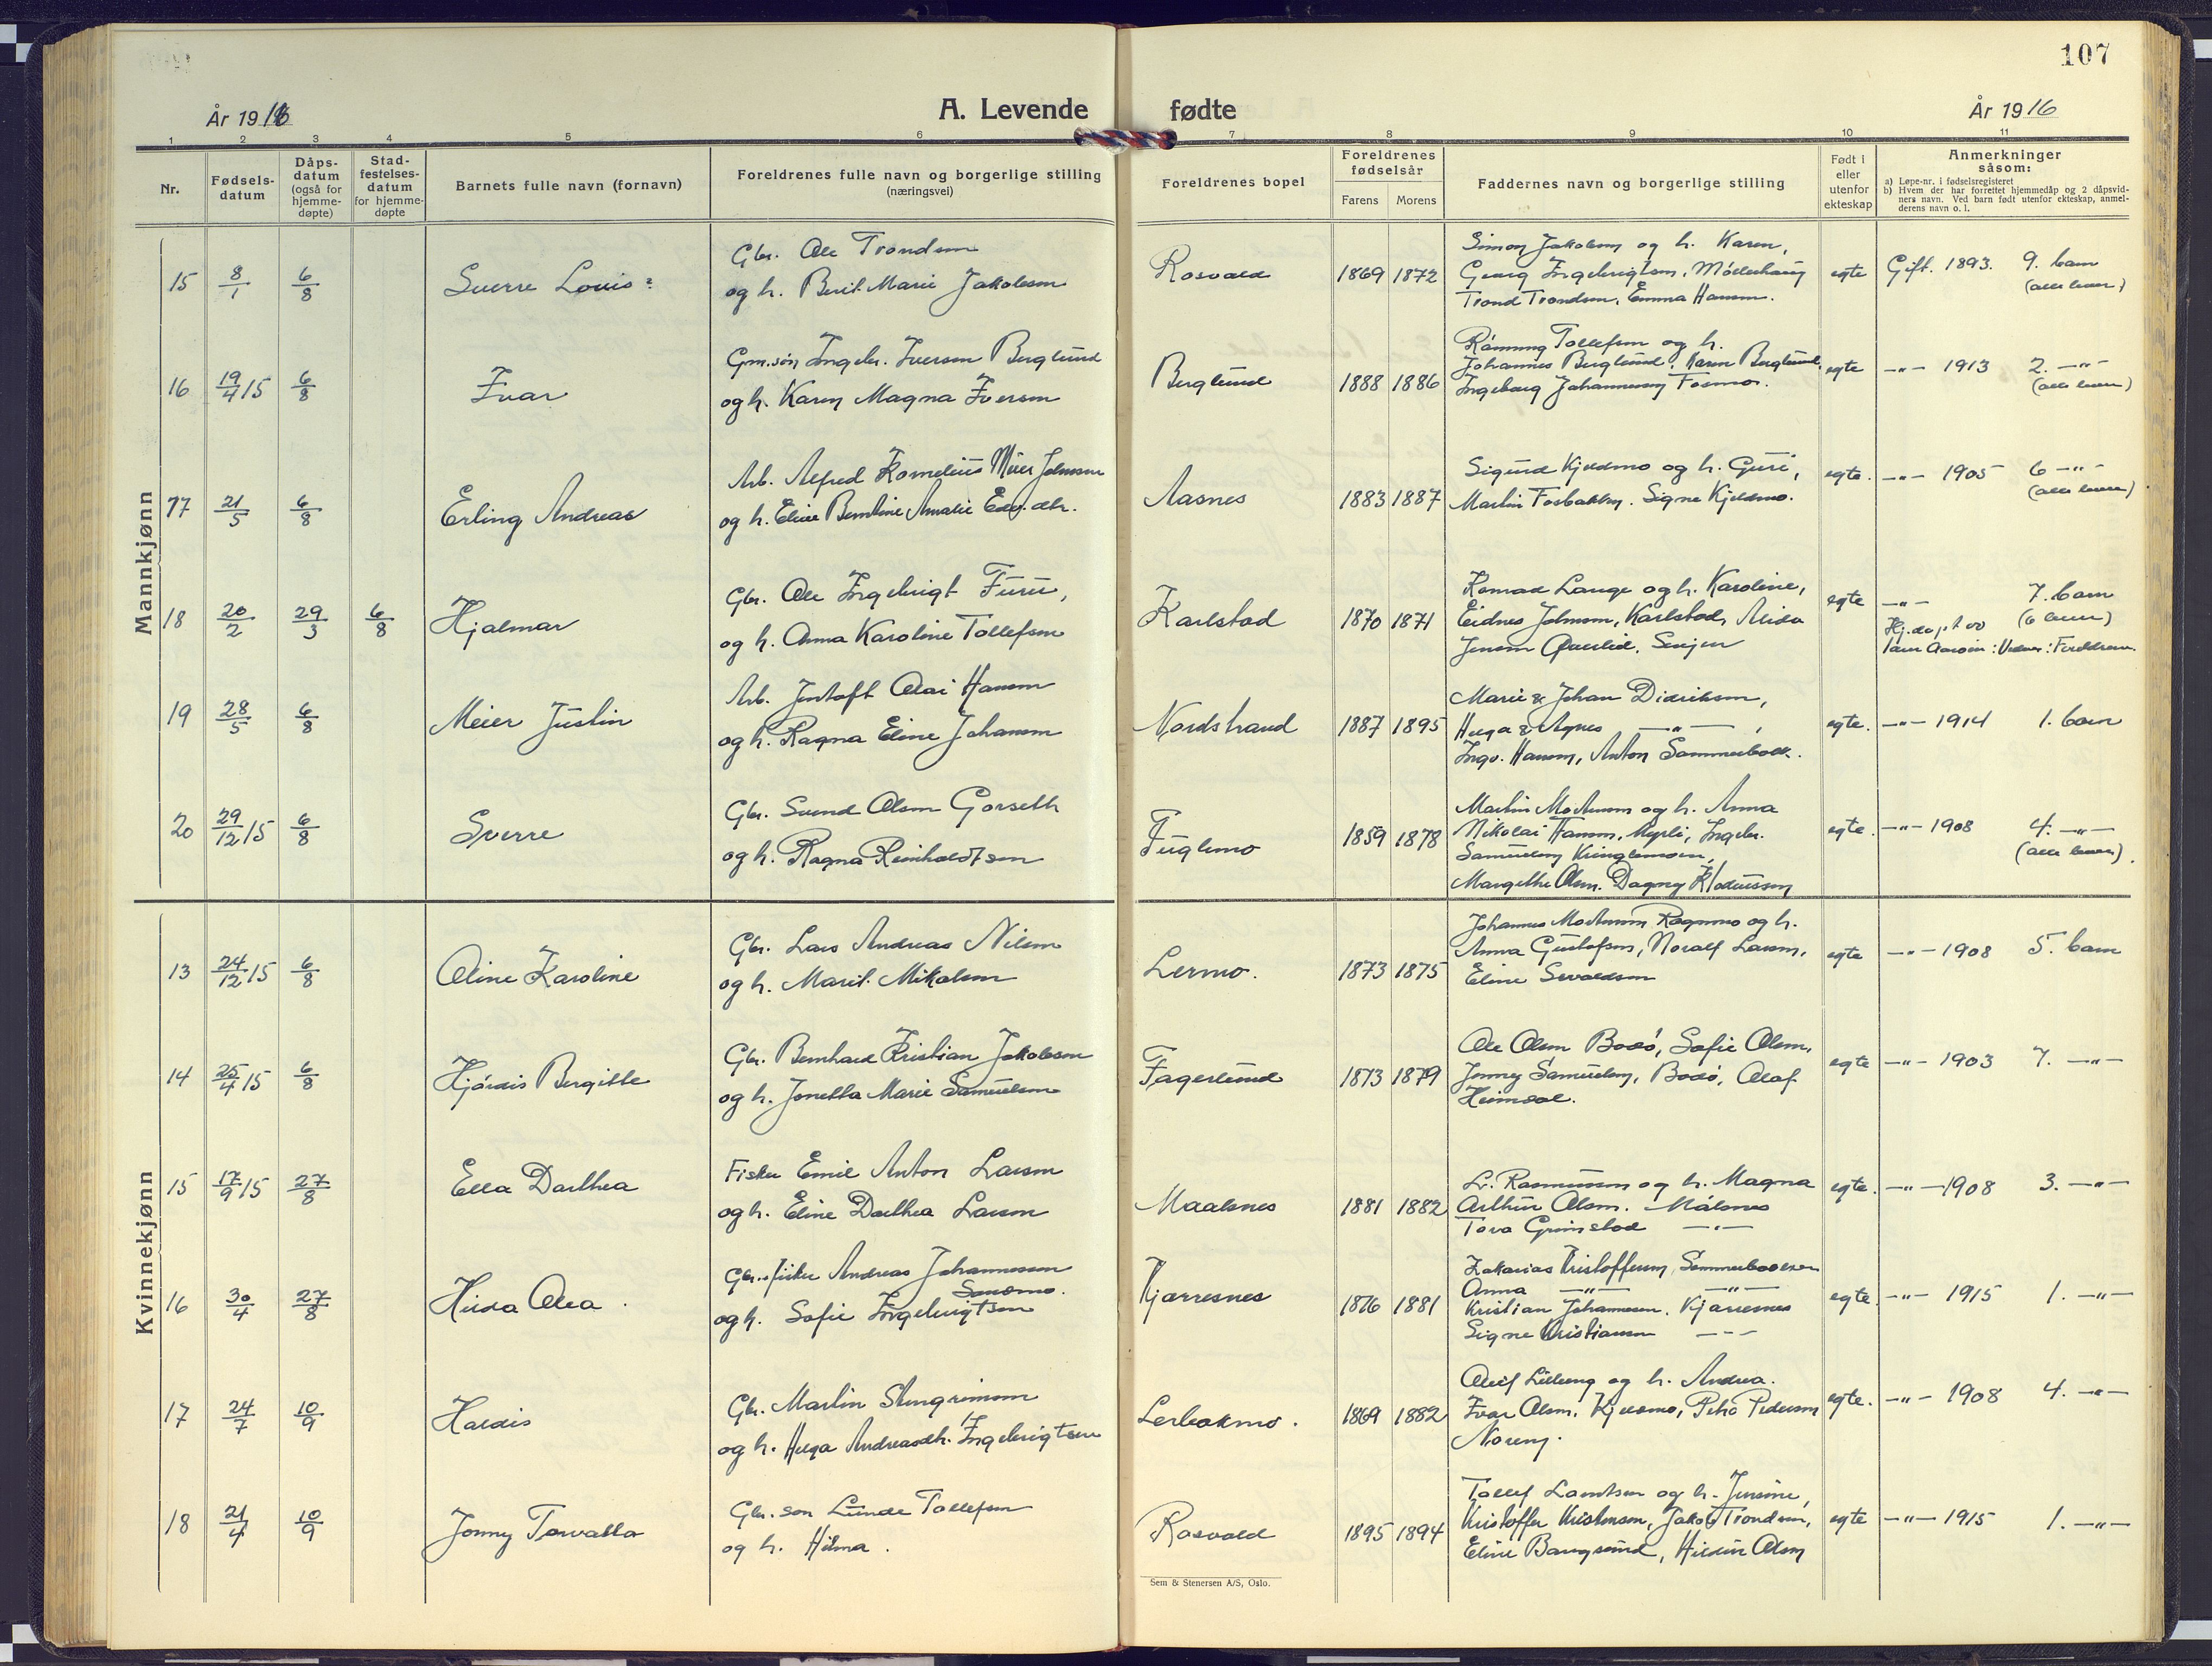 107
År 1916
A. Levende fødte
År 1916
1 2 3 4 5 6 7 8 9 10 11
Nr.
Fødselsdatum
Dåpsdatum (også for hjemmedøpte)
Stadfestelsesdatum for hjemmedøpte
Barnets fulle navn (fornavn)
Foreldrenes fulle navn og borgerlige stilling
(næringsvei)
Foreldrenes bopel
Foreldrenes fødselsår
Farens Morens
Faddernes navn og borgerlige stilling
Født i eller utenfor ekteskap
Anmerkninger såsom:
a) Løpe-nr. i fødselsregisteret
b) Hvem der har forrettet hjemmedåp og 2 dåpsvidners navn. Ved barn født utenfor ekteskap, anmelderens navn o. l.
Mannkjønn
15 8/1 6/8 Sverre Louis
Gbr. Ole Trondsen
og h. Berit Marie Jakobsen
Rosvald 1869 1872
Simon Jakobsen og h. Karen,
Georg Ingebrigtsen, Möllerhaug
Trond Trondsen, Emma Hansen.
egte Gift. 1893. 9. barn
(alle lever)
16 19/4 15 6/8 Ivar
Gm.søn Ingebr. Iversen Berglund
og h. Karen Magna Iversen
Berglund 1888 1886
Tollefsen og h.
Johannes Berglund, Karen Berglund,
Ingeborg Johannesen Fosmo.
egte -"- 1913 2. -"-
(alle lever)
17 21/5 6/8 Erling Andreas
Arb. Alfred Kornelius Meier Johnsen
og h. Eline Berntine Amalie Edv.dtr.
Aasnes 1883 1887
Sigurd Kjeldmo og h. Guri,
Martin Fosbakken. Signe Kjeldmo.
egte. -"- 1905 6 -"-
(alle lever)
18 20/2 29/3 6/8 Hjalmar
Gbr. Ole Ingebrigt Furu,
og h. Anna Karoline Tollefsen
Karlstad 1870 1871
Konrad Lange og h. Karoline,
Eidnes Johnsen, Karlstad, Alida
Jensen Senjen
egte -"- 7. barn
(6 lever)
Hj.døpt av
19 28/5 6/8 Meier Justin
Arb. Jentoft Olai Hansen
og h. Ragna Eline Johansen
Nordstrand 1887 1895
Marie & Johan Didriksen,
Helga & Agnes -"-,
Ingv. Hansen, Anton Sommerbakk.
egte. -"- 1914 1. barn
20 29/12 15 6/8 Sverre
Gbr. Svend Olsen Gorseth
og h. Ragna Reinholdtsen
Fuglmo 1859 1878
Martin Mortensen og h. Anna
Nikolai Hansen, Myrli, Ingebr.
Samuelsen
Margethe Olsen. Dagny Klodiussen
egte. -"- 1908 4. -"-
(alle lever).
Kvinnekjønn
13 24/12 15 6/8 Oline Karoline
Gbr. Lars Andreas Nilsen
og h. Marit Mikalsen
Lermo. 1873 1875
Johannes Mortensen Rognmo og h.
Anna Gustafsen, Noralf Larsen,
Eline Sevaldsen
egte -"- 1908 5. barn
14 25/4 15 6/8 Hjördis Bergitte
Gbr. Bernhard Kristian Jakobsen
og h. Jonetta Marie Samuelsen
Fagerlund 1873 1879
Ole Olsen Bodö, Sofie Olsen,
Jenny Samuelsen, Bodö, Olaf
Heimdal.
egte -"- 1903 7. -"-
15 17/9 15 27/8 Ella Dorthea
Fisker Emil Anton Larsen
og h. Eline Dorthea Larsen
Maalsnes 1881 1882
L. Rasmussen og h. Magna
Arthur Olsen. Målsnes
Tora Grimstad -"-
egte. -"- 1908 3. -"-
16 30/4 27/8 Hilda Olea.
Gbr. fisker Andreas Johannessen
Sandmo.
og h. Sofie Ingebrigtsen
Kjærresnes 1876 1881
Zakarias Kristoffersen, Sommerbakken
Anna -"- -"-
Kristian Johannesen. Kjærresnes
Signe Kristiansen -"-
egte. -"- 1915 1. -"-
17 24/7 10/9 Haldis
Gbr. Martin Stengrimsen
og h. Helga Andreasdtr. Ingebrigtsen
Lerbakmo. 1869 1882
Lilleeng og h. Andrea.
Ivar Olsen, Kjeldmo, Peder Pedersen
Noreng.
egte. -"- 1908 4. -"-
18 21/4 10/9 Jonny Torvalla
Gbr. søn Lunde Tollefsen
og h. Hilma.
Rosvald 1895 1894
Tollef Lorentsen og h. Jensine,
Kristoffer Kristensen, Jakob Trondsen,
Eline Bangsund, Hildur Olsen
egte -"- 1915 1. -"-
Sem & Stenersen A/S, Oslo.